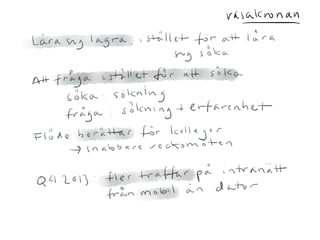 väsakronan
Lära sig lagra, istället för att lära
sig söka
Att fråga istället för att söka
söka: sökning
fråga: sökning + erfarenhet
Flöde berättar för kollegor
→ snabbare veckomöten
Q4 2013: fler träffar på intranätt
från mobil än dator